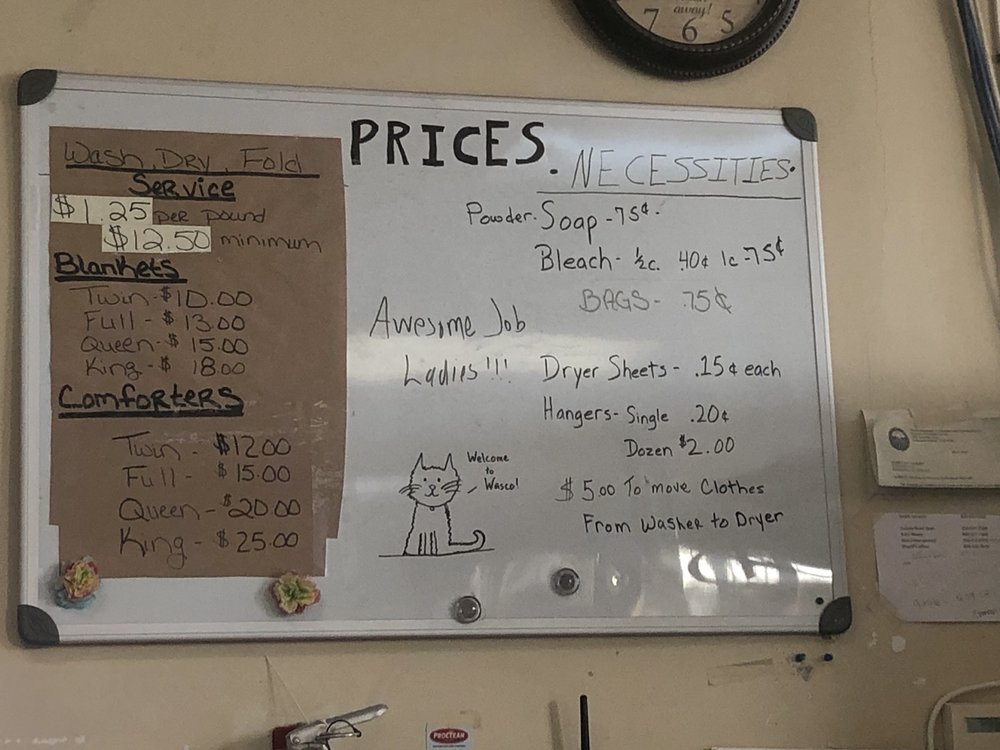 away!
7 6 5
PRICES
Wash, Dry, Fold
Service
$1.25 per pound
$12.50 minimum
Blankets
Twin-$10.00
Full - $13.00
Queen-$15.00
King-$ 18.00
Comforters
Twin - $12.00
Full - $15.00
Queen - $20.00
King - $25.00
• NECESSITIES•
Powder. Soap - 75¢.
Bleach - ½c. .40¢ 1c - 75¢
BAGS - .75¢
Awesome Job
Ladies!!!
Dryer Sheets - .15¢ each
Hangers - Single .20¢
Dozen $2.00
$ 5.00 To move Clothes
From Washer to Dryer
Welcome
to
Wasco!
PROCTEAM